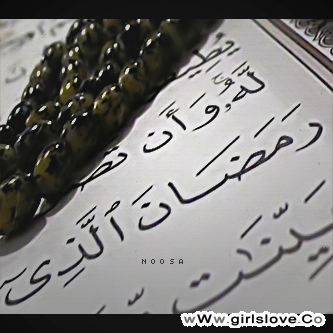 لَّهُۥ وَأَن تَصُ
رَمَضَانَ ٱلَّذِىٓ
NOOSA
wWw.girlslove.Co